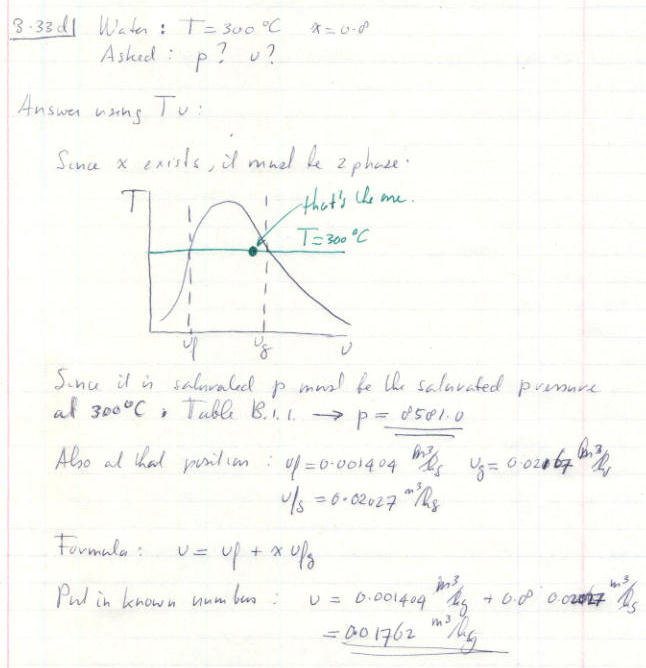 3.33d] Water : T=300 °C x=0.8
Asked : p? v?
Answer using Tv:
Since x exists, it must be 2 phase.
T
that's the one.
T=300°C
vf vg v
Since it is saturated p must be the saturated pressure
at 300°C ; Table B.1.1. → p = 8581.0
Also at that position : vf=0.001404 m³/kg vg=0.02167 m³/kg
vfg =0.02027 m³/kg
Formula: v= vf + x vfg
Put in known numbers : v = 0.001404 m³/kg + 0.8 0.02027 m³/kg
= 0.01762 m³/kg